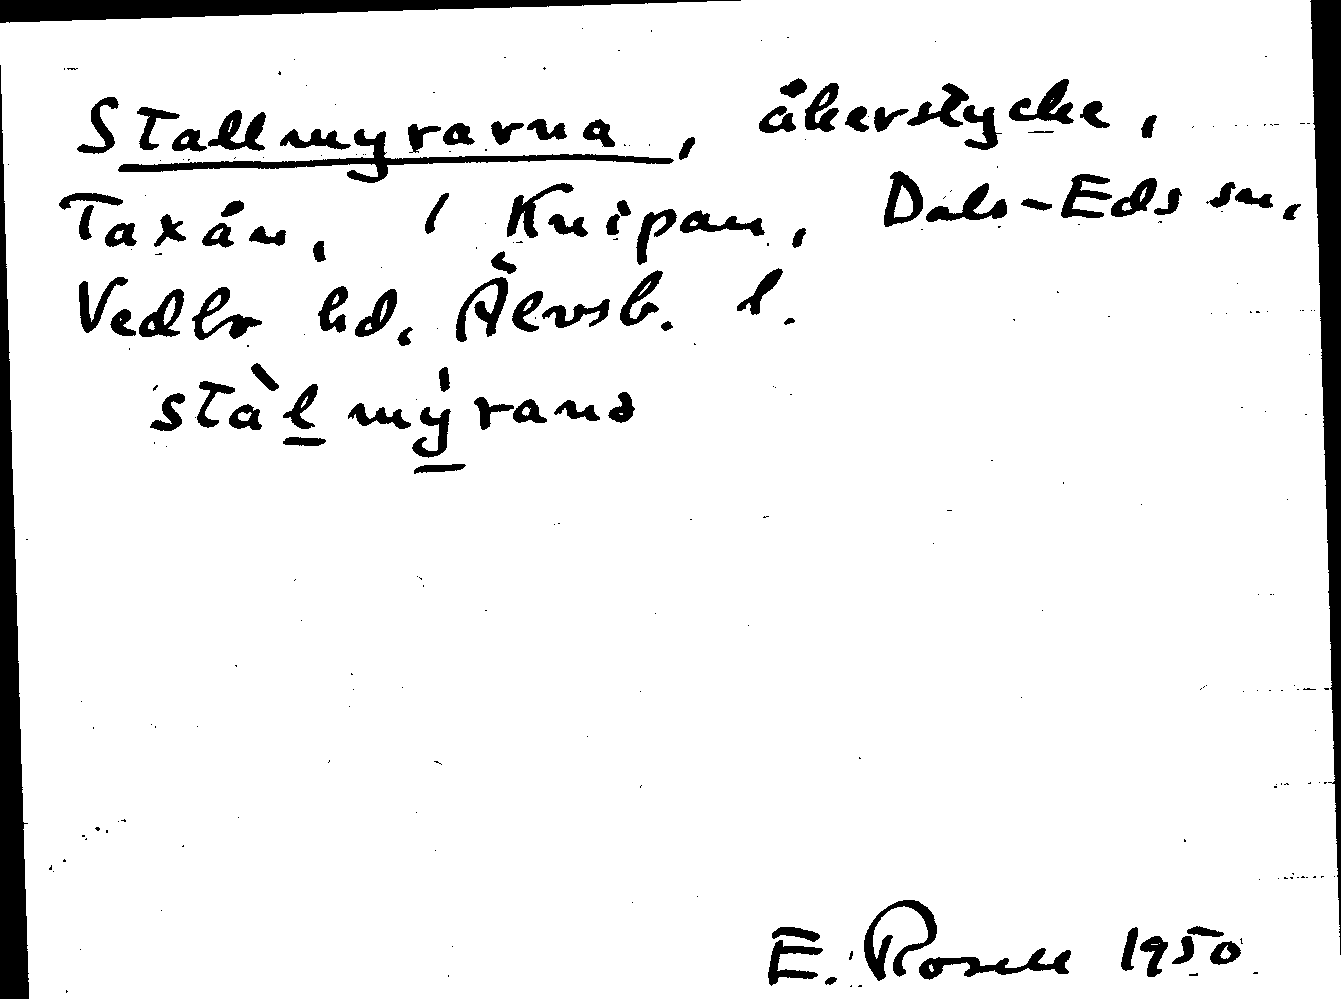 Stallmyrarna, åkerstycke,
Taxån, 1 Knipan, Dals-Eds sn.
Vedbo hd. Älvsb. l.
stàl mýrana
E. Rosell 1950